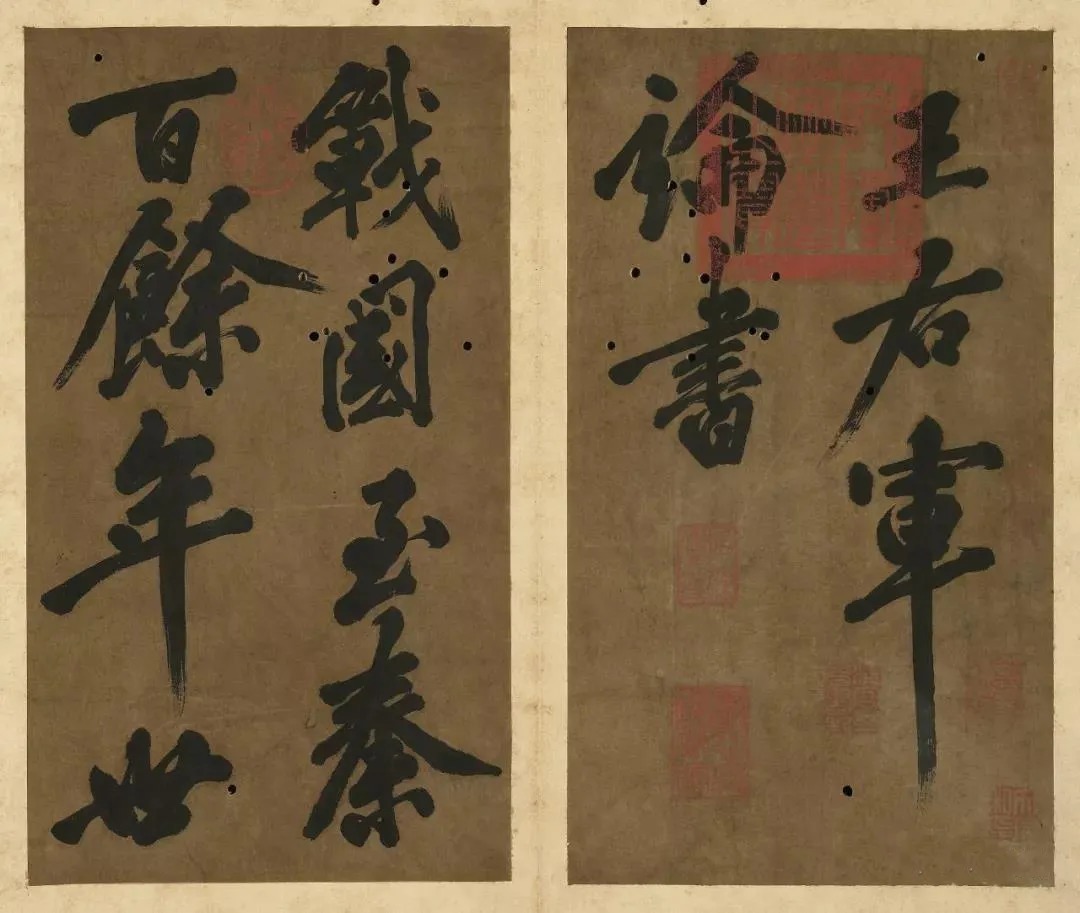 王右軍
論書
戰國至秦
百餘年世